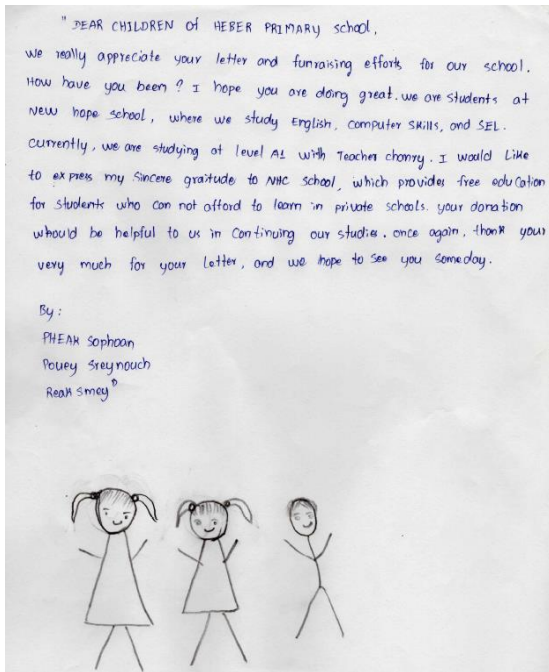 "DEAR CHILDREN of HEBER PRIMARY school,
we really appreciate your letter and funraising efforts for our school.
How have you been? I hope you are doing great. we are students at
New hope school, where we study English, computer skills, and SEL.
currently, we are studying at level A1 with Teacher chonry. I would like
to express my sincere graitude to NHC school, which provides free education
for students who can not afford to learn in private schools. your donation
whould be helpful to us in continuing our studies. once again, thank your
very much for your letter, and we hope to see you someday.
By:
PHEAK Sophoan
Pouey Sreynouch
Reak Smey"